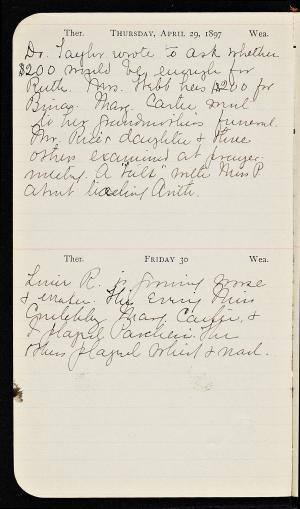 Ther. THURSDAY, APRIL 29, 1897 Wea.
Dr. Taylor wrote to ask whether
$200 would be enough for
Ruth. Mrs. Webb has $200 for
Mary Carter went
to her grandmother's funeral.
Mr. daughter & three
others examined at prayer
meeting. A "talk" with Miss P
about teaching Arith.
Ther. FRIDAY 30 Wea.
R. is growing worse
& weaker. This evening Miss
Mary Carter, &
I played Parchesi. The
others played whist & read.